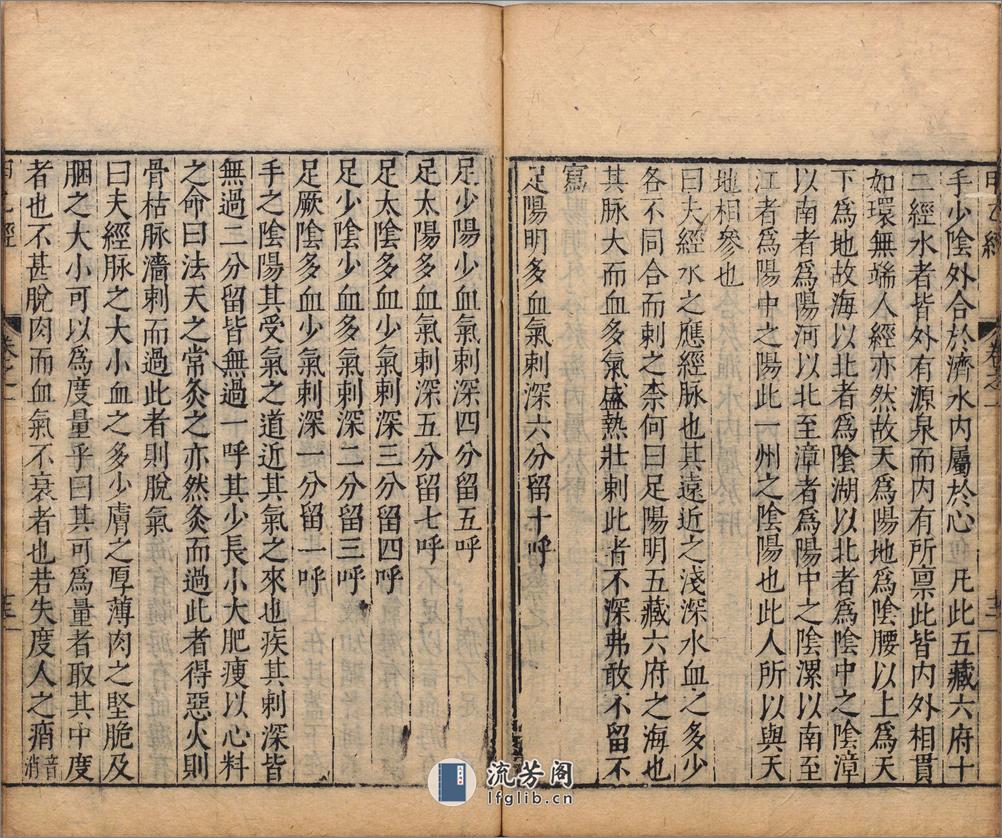 手少陰外合於濟水内屬於心 凡此五藏六府十
二經水者皆外有源泉而内有所禀此皆内外相貫
如環無端人經亦然故天爲陽地爲陰腰以上爲天
下爲地故海以北者爲陰湖以北者爲陰中之陰漳
以南者爲陽河以北至漳者爲陽中之陰漯以南至
江者爲陽中之陽此一州之陰陽也此人所以與天
地相參也
曰夫經水之應經脉也其遠近之淺深水血之多少
各不同合而刺之柰何曰足陽明五藏六府之海也
其脉大而血多氣盛熱壯刺此者不深弗敢不留不
寫
足陽明多血氣刺深六分留十呼
足少陽少血氣刺深四分留五呼
足太陽多血氣刺深五分留七呼
足太陰多血少氣刺深三分留四呼
足少陰少血多氣刺深二分留三呼
足厥陰多血少氣刺深一分留一呼
手之陰陽其受氣之道近其氣之來也疾其刺深皆
無過二分留皆無過一呼其少長小大肥瘦以心料
之命曰法天之常灸之亦然灸而過此者得惡火則
骨枯脉濇刺而過此者則脫氣
曰夫經脉之大小血之多少膚之厚薄肉之堅脆及
膕之大小可以爲度量乎曰其可爲量者取其中度
者也不甚脫肉而血氣不衰者也若失度人之痟音消
流芳阁
lfglib.cn